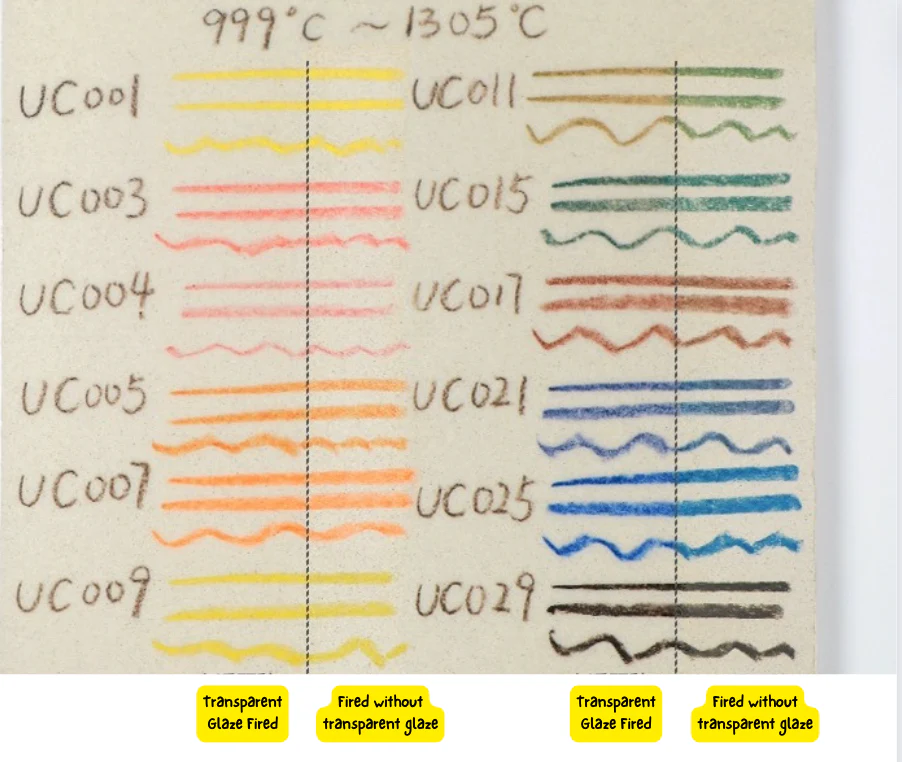 999°C ~ 1305°C
UC001
UC011
UC003
UC015
UC004
UC017
UC005
UC021
UC007
UC025
UC009
UC029
Transparent
Glaze Fired
Fired without
transparent glaze
Transparent
Glaze Fired
Fired without
transparent glaze